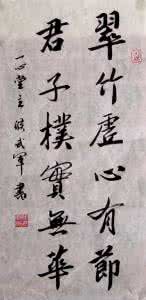 翠竹虛心有節
君子樸實無華
一心堂主 武軍書